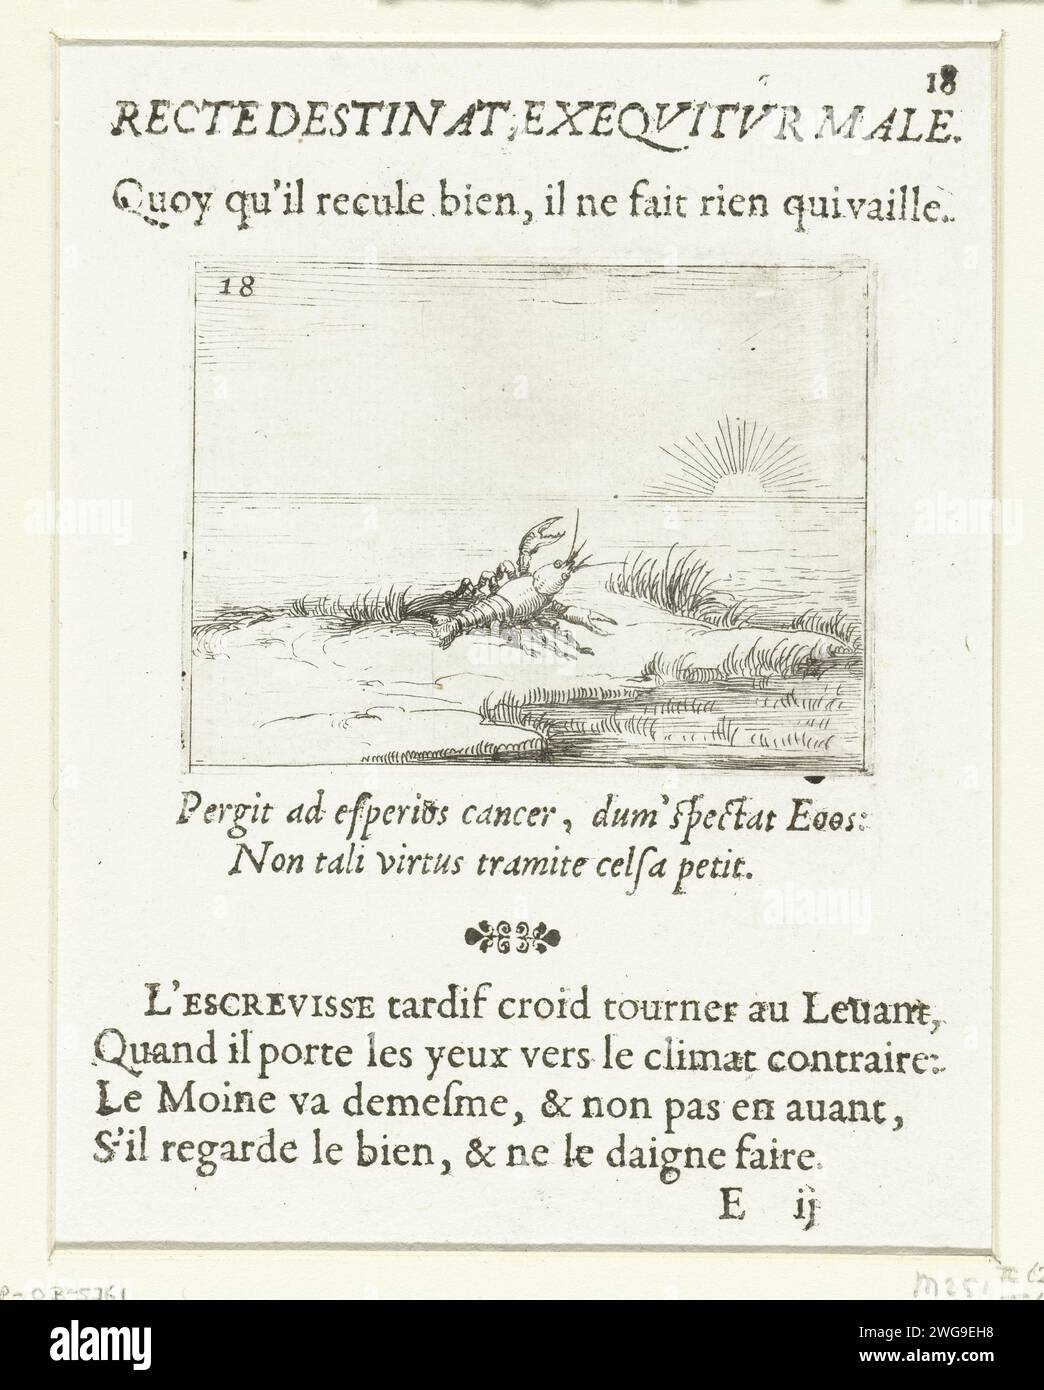 18
RECTE DESTINAT, EXEQVITVR MALE.
Quoy qu'il recule bien, il ne fait rien qui vaille.
18
Pergit ad esperios cancer, dum spectat Eoos:
Non tali virtus tramite celsa petit.
L'ESCREVISSE tardif croid tourner au Leuant,
Quand il porte les yeux vers le climat contraire:
Le Moine va demesme, & non pas en auant,
S'il regarde le bien, & ne le daigne faire.
E ij
P-OB-5761
alamy
Image ID: 2WG9EH8
www.alamy.com